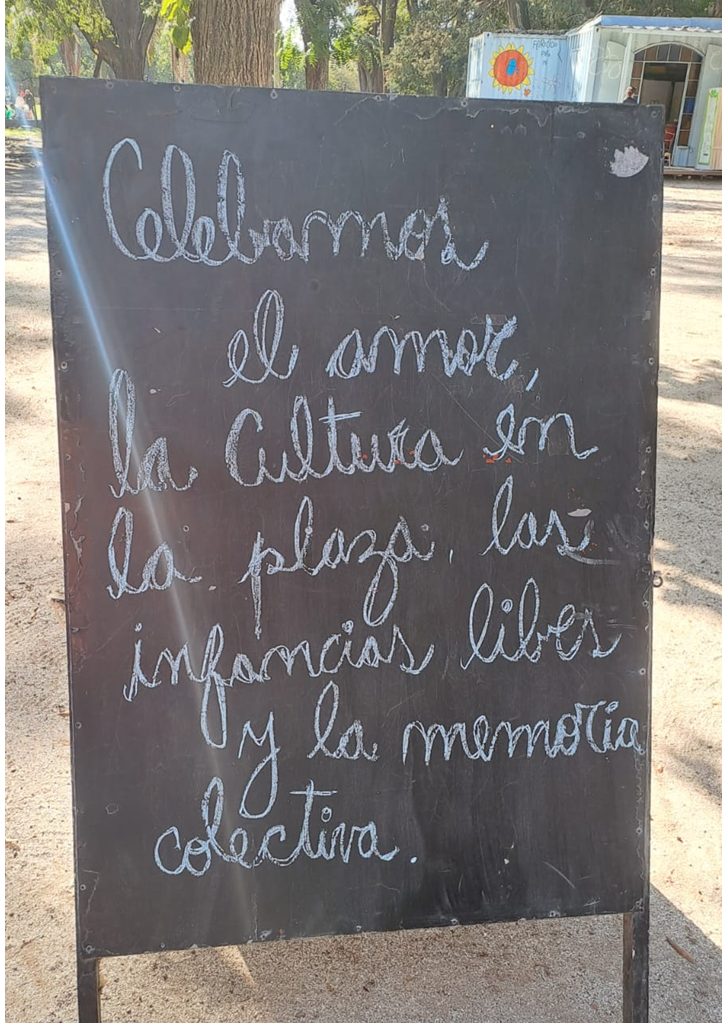 Celebamos
el amor,
la Cultura en
la plaza, las
infancias libes
y la memoria
colectiva.